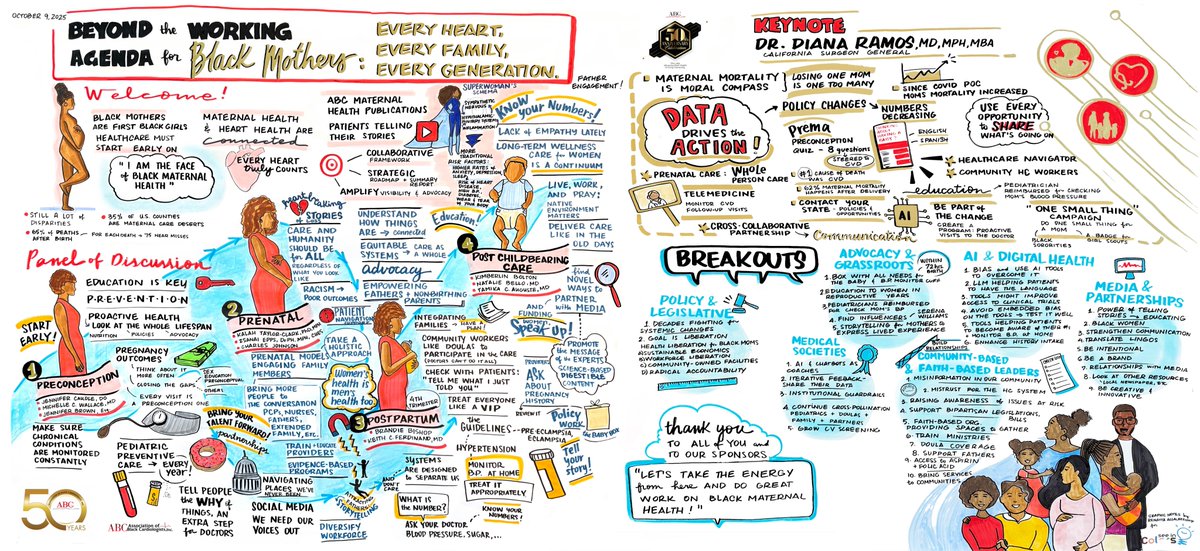 OCTOBER 9, 2025
BEYOND the WORKING
AGENDA for Black Mothers:
EVERY HEART,
EVERY FAMILY,
EVERY GENERATION.
Welcome!
BLACK MOTHERS
ARE FIRST BLACK GIRLS
HEALTHCARE MUST
START EARLY ON
"I AM THE FACE
OF BLACK MATERNAL
HEALTH"
MATERNAL HEALTH
& HEART HEALTH ARE
connected
EVERY HEART
Truly COUNTS
STILL A LOT OF
DISPARITIES
35% OF U.S. COUNTIES
ARE MATERNAL CARE DESERTS
65% OF DEATHS
AFTER BIRTH
FOR EACH DEATH → 75 NEAR MISSES
ABC MATERNAL
HEALTH PUBLICATIONS
PATIENTS TELLING
THEIR STORIES
COLLABORATIVE
FRAMEWORK
STRATEGIC
ROADMAP + SUMMARY
REPORT
AMPLIFY VISIBILITY & ADVOCACY
SUPERWOMAN'S
SCHEMA
INFLAMMATION
MORE
TRADITIONAL
RISK FACTORS:
HIGHER RATES OF
ANXIETY, DEPRESSION,
FATHER
ENGAGEMENT!
KNOW
your Numbers!
LACK OF EMPATHY LATELY
LONG-TERM WELLNESS
CARE for WOMEN
IS A CONTINUUM
LIVE, WORK,
AND PRAY!
NATIVE
ENVIRONMENT
MATTERS
DELIVER CARE
LIKE IN THE
OLD DAYS
Panel of Discussion
EDUCATION IS KEY
P·R·E·V·E·N·T·I·O·N
PROACTIVE HEALTH
LOOK AT THE WHOLE LIFESPAN
NUTRITION
POLICIES
ADVOCACY
START
EARLY!
1
PRECONCEPTION
JENNIFER BROWN
MAKE SURE
CHRONICAL
CONDITIONS
ARE MONITORED
CONSTANTLY
PREGNANCY
OUTCOMES
THINK ABOUT IT
MORE OFTEN
CLOSING THE GAPS
SEX
EDUCATION
PRECONCEPTION
EVERY VISIT IS
A PRECONCEPTION ONE
BRING YOUR
TALENT FORWARD!
partnerships
PEDIATRIC
PREVENTIVE
CARE → EVERY
YEAR
TELL PEOPLE
the WHY OF
THINGS, AN
EXTRA STEP
for DOCTORS
NAVIGATING
PLACES WE'VE
NEVER BEEN
SOCIAL MEDIA
WE NEED OUR
VOICES OUT
2
PRENATAL
CHARLES JOHNSON
PRENATAL MODELS
ENGAGING FAMILY
MEMBERS
BRING MORE
PEOPLE to the
CONVERSATION
PCPs, NURSES,
FATHERS,
EXTENDED
FAMILY, ETC.
TRAIN + EDUCATE
PROVIDERS
EVIDENCE-BASED
PROGRAMS
STORYTELLING
DIVERSIFY
WORKFORCE
heartbreaking
STORIES
OF LOSS
CARE AND
HUMANITY
SHOULD BE
for ALL
REGARDLESS OF
WHAT YOU LOOK
LIKE
RACISM →
POOR OUTCOMES
PATIENT
NAVIGATION
TAKE A
HOLISTIC
APPROACH
Women's
health is
men's
health too!
UNDERSTAND
HOW THINGS
ARE → connected
EQUITABLE
SYSTEMS
CARE AS
A WHOLE
advocacy
EMPOWERING
FATHERS + NONBIRTHING
PARENTS
Education!
4
POST CHILDBEARING
CARE
KIMBERLIN BOLTON
NATALIE BELLO, MD
INTEGRATING
FAMILIES → LEAVE A
PLAN!
COMMUNITY WORKERS
LIKE DOULAS TO
PARTICIPATE IN THE CARE
(DOULAS CAN'T DO IT ALL)
CHECK WITH PATIENTS:
"TELL ME WHAT I JUST
TOLD YOU"
TREAT EVERYONE
LIKE A VIP
4TH
TRIMESTER
3
POSTPARTUM
BRANDIE BISHOP
KEITH C FERDINAND, MD
the
GUIDELINES → PRE-ECLAMPSIA,
ECLAMPSIA
HYPERTENSION
MONITOR
B.P. AT HOME
TREAT IT
APPROPRIATELY
SYSTEMS
ARE DESIGNED
TO SEPARATE US
AND DON'T
CARE
WHAT IS
the NUMBER?
KNOW YOUR
NUMBERS!
ASK YOUR DOCTOR
BLOOD PRESSURE, SUGAR,...
FIND
NOVEL
WAYS to
PARTNER
with MEDIA
AND
FUNDING
Speak Up!
PROMOTE
THE MESSAGE
OF the EXPERTS,
SCIENCE-BASED
DIGESTIBLE
CONTENT
PROVIDERS
ASK
ABOUT
PREGNANCY
HISTORY
BENEFIT
Policy
WORK
THE BABY BOX
Tell
your
story!
ABC
50
YEARS
ABC Association of
Black Cardiologists, Inc.
ABC
50
ANNIVERSARY
KEYNOTE
DR. DIANA RAMOS, MD, MPH, MBA
CALIFORNIA SURGEON GENERAL
MATERNAL MORTALITY
IS MORAL COMPASS
LOSING ONE MOM
IS ONE TOO MANY
SINCE COVID POC
MOMS MORTALITY INCREASED
DATA
DRIVES the
ACTION!
POLICY CHANGES
NUMBERS
DECREASING
Prema
PRECONCEPTION
QUIZ → 8 questions
STEERED to
CVD
ENGLISH
SPANISH
USE EVERY
OPPORTUNITY
to SHARE
WHAT'S GOING ON
PRENATAL CARE: WHOLE
PERSON CARE
#1 CAUSE OF DEATH
WAS CVD
62% MATERNAL MORTALITY
HAPPENS AFTER DELIVERY
HEALTHCARE NAVIGATOR
COMMUNITY HC WORKERS
education
PEDIATRICIAN
REIMBURSED for CHECKING
MOM'S BLOOD PRESSURE
TELEMEDICINE
MONITOR CVD
FOLLOW-UP VISITS
CONTACT YOUR
STATE → POLICIES &
OPPORTUNITIES
AI
BE PART OF
THE CHANGE
CREATE A
PROGRAM: PROACTIVE
VISITS TO THE DOCTOR
"ONE SMALL THING"
CAMPAIGN
DO ONE SMALL THING for
A MOM
BLACK
SORORITIES
A BADGE for
GIRL SCOUTS
CROSS-COLLABORATIVE
PARTNERSHIP
Communication
BREAKOUTS
POLICY &
LEGISLATIVE
1. DECADES FIGHTING for
SYSTEMIC CHANGES
2. GOAL IS LIBERATION
HEALTH LIBERATION of BLACK MOMS
SUSTAINABLE ECONOMICS
WORKFORCE LIBERATION
COMMUNITY-OWNED FACILITIES
RADICAL ACCOUNTABILITY
MEDICAL
SOCIETIES
1. AI & CHATBOTS as
COACHES
2. ITERATIVE FEEDBACK →
SHARE THEIR DATA
3. INSTITUTIONAL GUARDRAILS
4. CONTINUE CROSS-POLLINATION
PEDIATRICS & DOULAS &
FAMILY & PARTNERS
5. GROW CV SCREENING
ADVOCACY &
GRASSROOTS
WITHIN
72 hrs
BIRTH
1. BOX WITH ALL NEEDS for
THE BABY & B.P MONITOR CUFF
2. EDUCATION TO WOMEN IN
REPRODUCTIVE YEARS
3. PEDIATRICIANS REIMBURSED
for CHECK MOM'S BP
4. FIND INFLUENCERS
SERENA
WILLIAMS
5. STORYTELLING for MOTHERS to
EXPRESS LIVED EXPERIENCE
AI & DIGITAL HEALTH
1. BIAS AND USE AI TOOLS
TO OVERCOME IT
2. LLM HELPING PATIENTS
TO HAVE THE LANGUAGE
3. TOOLS MIGHT IMPROVE
ACCESS TO CLINICAL TRIALS
4. AVOID EMBEDDED BIAS
in the TOOL & TEST IT WELL
5. TOOLS HELPING PATIENTS
BECOME AWARE of THEIR #s
6. MONITOR B.P. @ HOME
7. ENHANCE HISTORY INTAKE
BUILD
RELATIONSHIPS
COMMUNITY-BASED
& FAITH-BASED LEADERS
1. MISINFORMATION IN OUR COMMUNITY
2. MISTRUST FOR THE HC SYSTEM
3. RAISING AWARENESS of ISSUES AT RISK
4. SUPPORT BIPARTISAN LEGISLATIONS,
BILLS
5. FAITH-BASED ORG
PROVIDING SPACES to GATHER
6. TRAIN MINISTRIES
7. DOULA COVERAGE
8. SUPPORT FATHERS
9. ACCESS to ASPIRIN
+ FOLIC ACID
10. BRING SERVICES
to COMMUNITIES
MEDIA &
PARTNERSHIPS
1. POWER of TELLING
STORIES → EDUCATING
2. BLACK WOMEN
3. STRENGTHEN COMMUNICATION
4. TRANSLATE LINGOS
5. BE INTENTIONAL
6. BE A BRAND
7. RELATIONSHIPS with MEDIA
8. LOOK AT OTHER RESOURCES
9. BE CREATIVE /
INNOVATIVE
thank you
TO ALL of YOU and
TO OUR SPONSORS
"LET'S TAKE THE ENERGY
from here AND DO GREAT
WORK ON BLACK MATERNAL
HEALTH!"
GRAPHIC NOTES by
see in
Colors